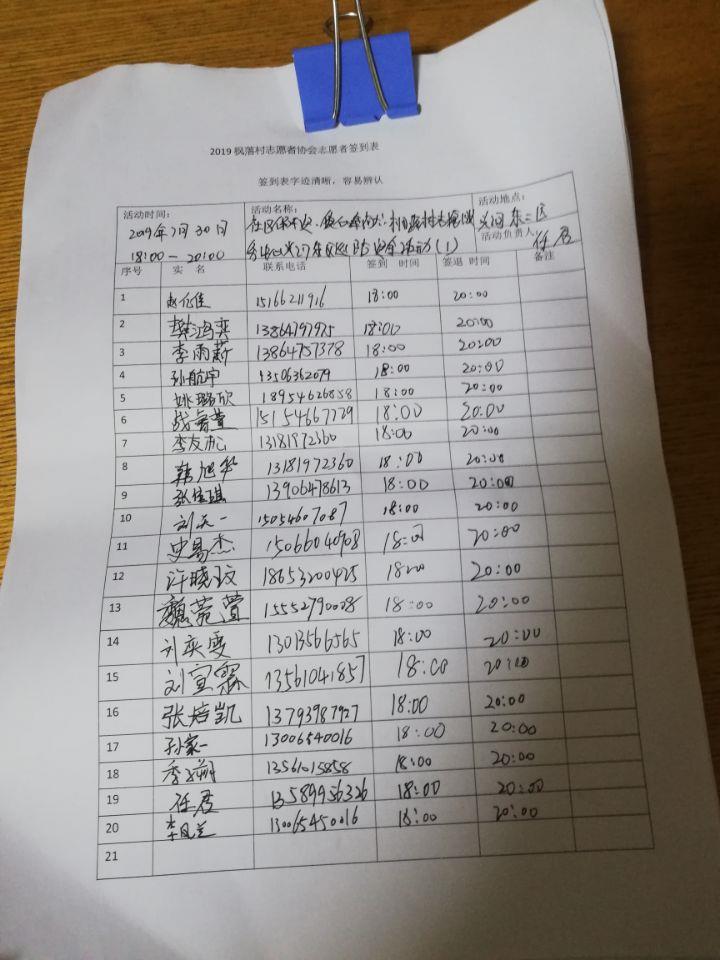 2019枫落村志愿者协会志愿者签到表
签到表字迹清晰，容易辨认
活动时间： 2019年7月30日 18:00—20:00
活动名称：
活动地点： 东二区
活动负责人： 任君
序号 实 名 联系电话 签到 时间 签退 时间 备注
1 15166211916 18:00 20:00
2 樊鸿奕 13864797975 18:00 20:00
3 李雨蔚 13864757378 18:00 20:00
4 孙航宇 13506362079 18:00 20:00
5 姚璐欣 18954626858 18:00 20:00
6 战睿萱 15154667779 18:00 20:00
7 李友 13181972360 18:00 20:00
8 韩旭华 13181972360 18:00 20:00
9 张佳琪 13906478613 18:00 20:00
10 刘天一 15054607087 18:00 20:00
11 史易杰 15066040908 18:00 20:00
12 许晓玟 18653200425 18:00 20:00
13 魏菀萱 15552790028 18:00 20:00
14 刘奕雯 13013566565 18:00 20:00
15 刘宣霖 13561041857 18:00 20:00
16 张培凯 13793987927 18:00 20:00
17 孙家一 13006540016 18:00 20:00
18 13561015858 18:00 20:00
19 任君 13589956326 18:00 20:00
20 李凤兰 130065450016 18:00 20:00
21